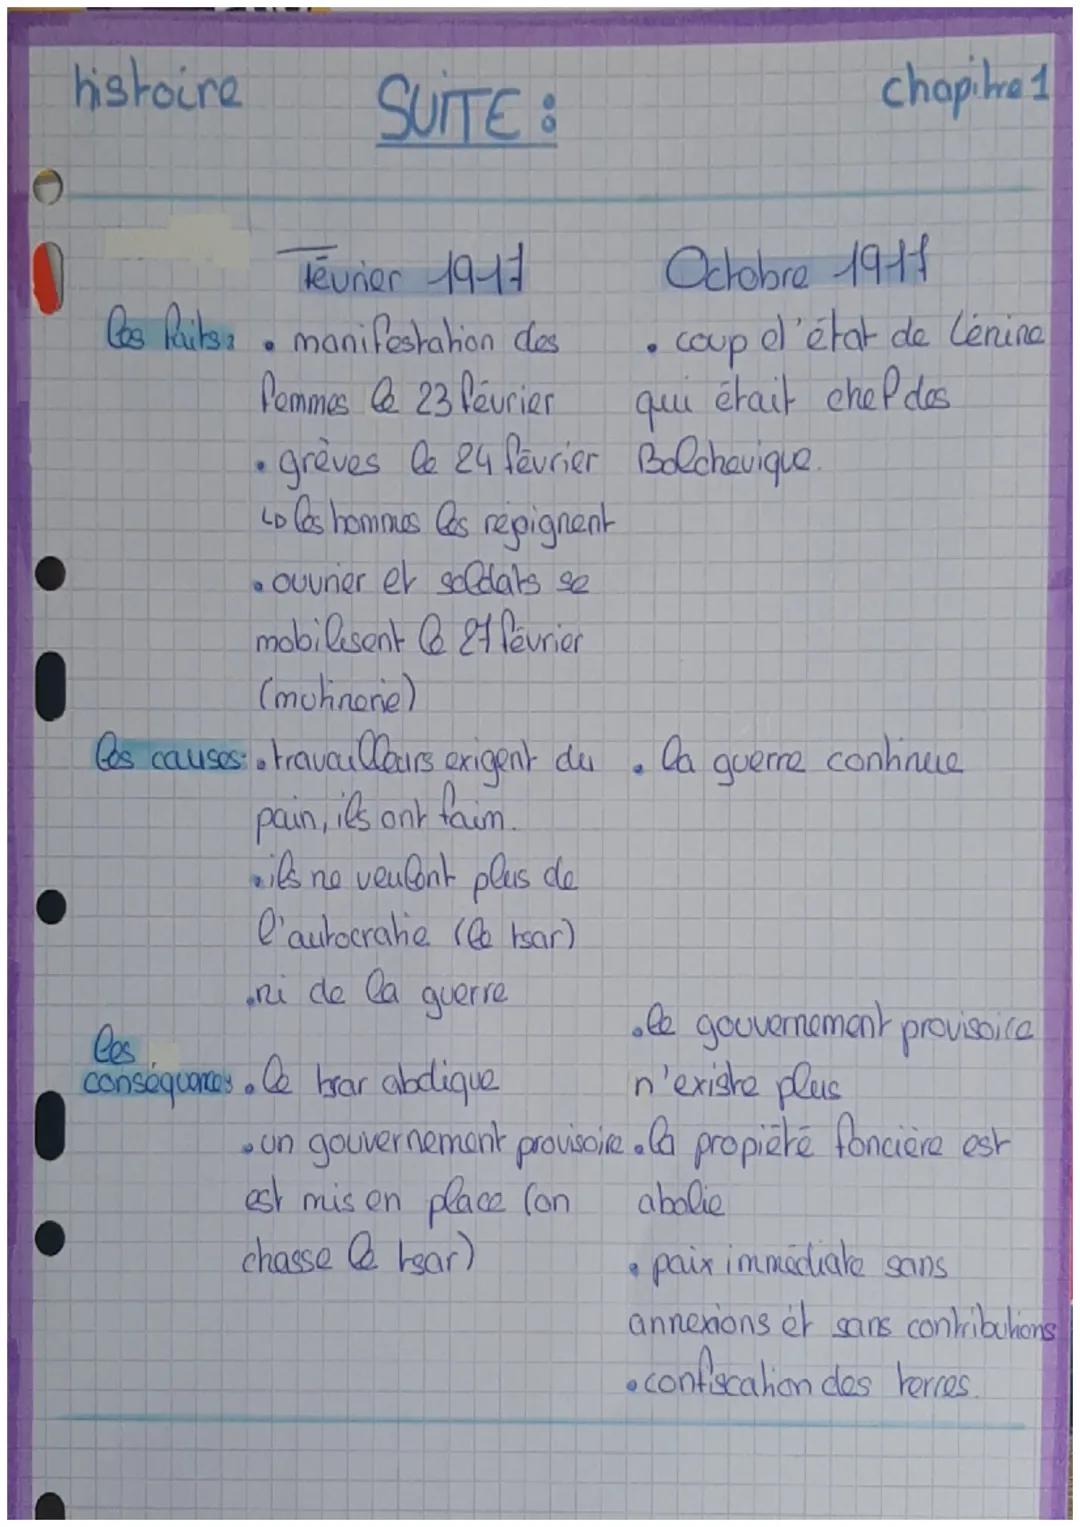 histoire SUITE : chapitre 1
Février 1917 Octobre 1917
les faits : • manifestation des • coup d'état de Lénine
femmes le 23 février qui était chef des
• grèves le 24 février Bolchevique.
↳ les hommes les repignent
• ouvrier et soldats se
mobilisent le 27 février
(mutinerie)
les causes : • travailleurs exigent du • la guerre continue
pain, ils ont faim.
• ils ne veulent plus de
l'autocratie (le tsar)
• ni de la guerre
• le gouvernement provisoire
les
conséquences • le tsar abdique n'existe plus
• un gouvernement provisoire • la propiété foncière est
est mis en place (on abolie
chasse le tsar) • paix immédiate sans
annexions et sans contributions
• confiscation des terres.